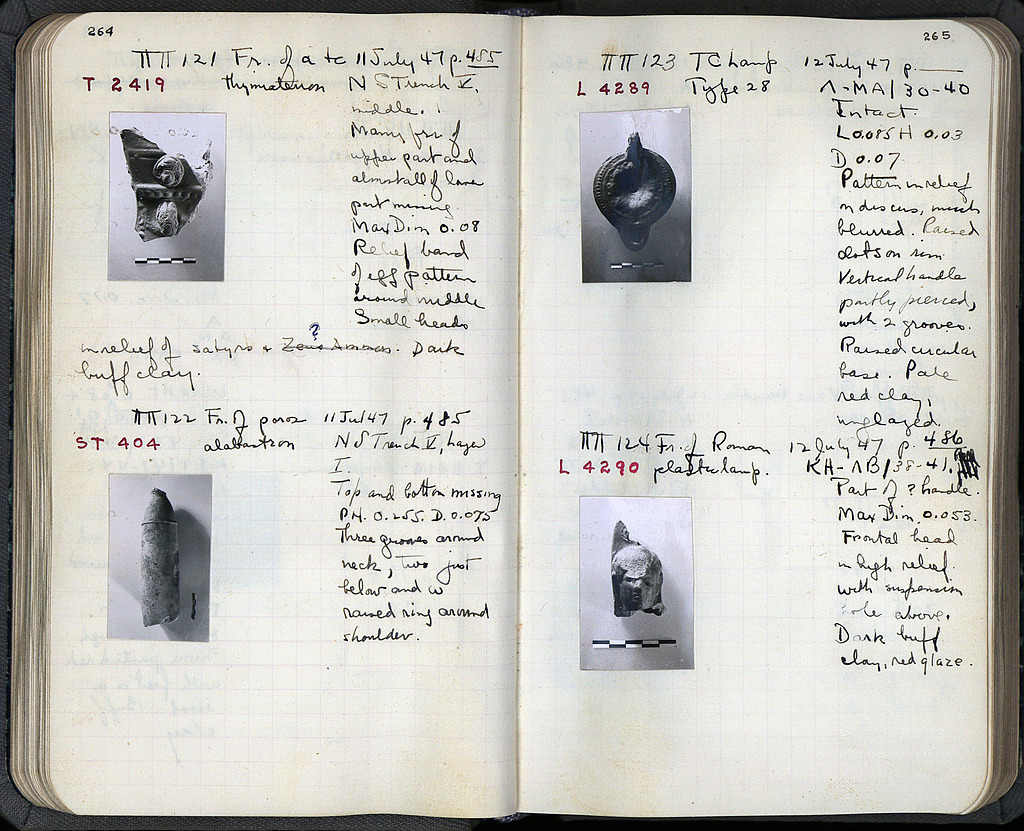 264
ΠΠ 121 Fr. of a tc 11 July 47 p. 485
T 2419 thymiaterion N S Trench V,
middle.
Many frr of
upper part and
almost all of lower
part missing.
Max Dim 0.08
Relief band
of egg pattern
around middle
Small heads
?
in relief of satyrs + Zeus Ammon. Dark
buff clay.
ΠΠ 122 Fr. of poros 11 Jul 47 p. 485
ST 404 alabastron N S Trench V, Layer
I.
Top and bottom missing
P.H. 0.255. D. 0.075
Three grooves around
neck, two just
below and a
raised ring around
shoulder.
265
ΠΠ 123 TC lamp 12 July 47 p.
L 4289 Type 28 Λ-ΜΑ/30-40
Intact.
L 0.085 H 0.03
D 0.07
Pattern in relief
on discus, much
blurred. Raised
dots on rim.
Vertical handle
partly pierced,
with 2 grooves.
Raised circular
base. Pale
red clay,
unglazed.
ΠΠ 124 Fr. of Roman 12 July 47 p. 486
L 4290 plastic lamp. ΚΗ-ΛΒ/38-41,
Part of ? handle.
Max Dim. 0.053.
Frontal head
in high relief.
with suspension
hole above.
Dark buff
clay, red glaze.